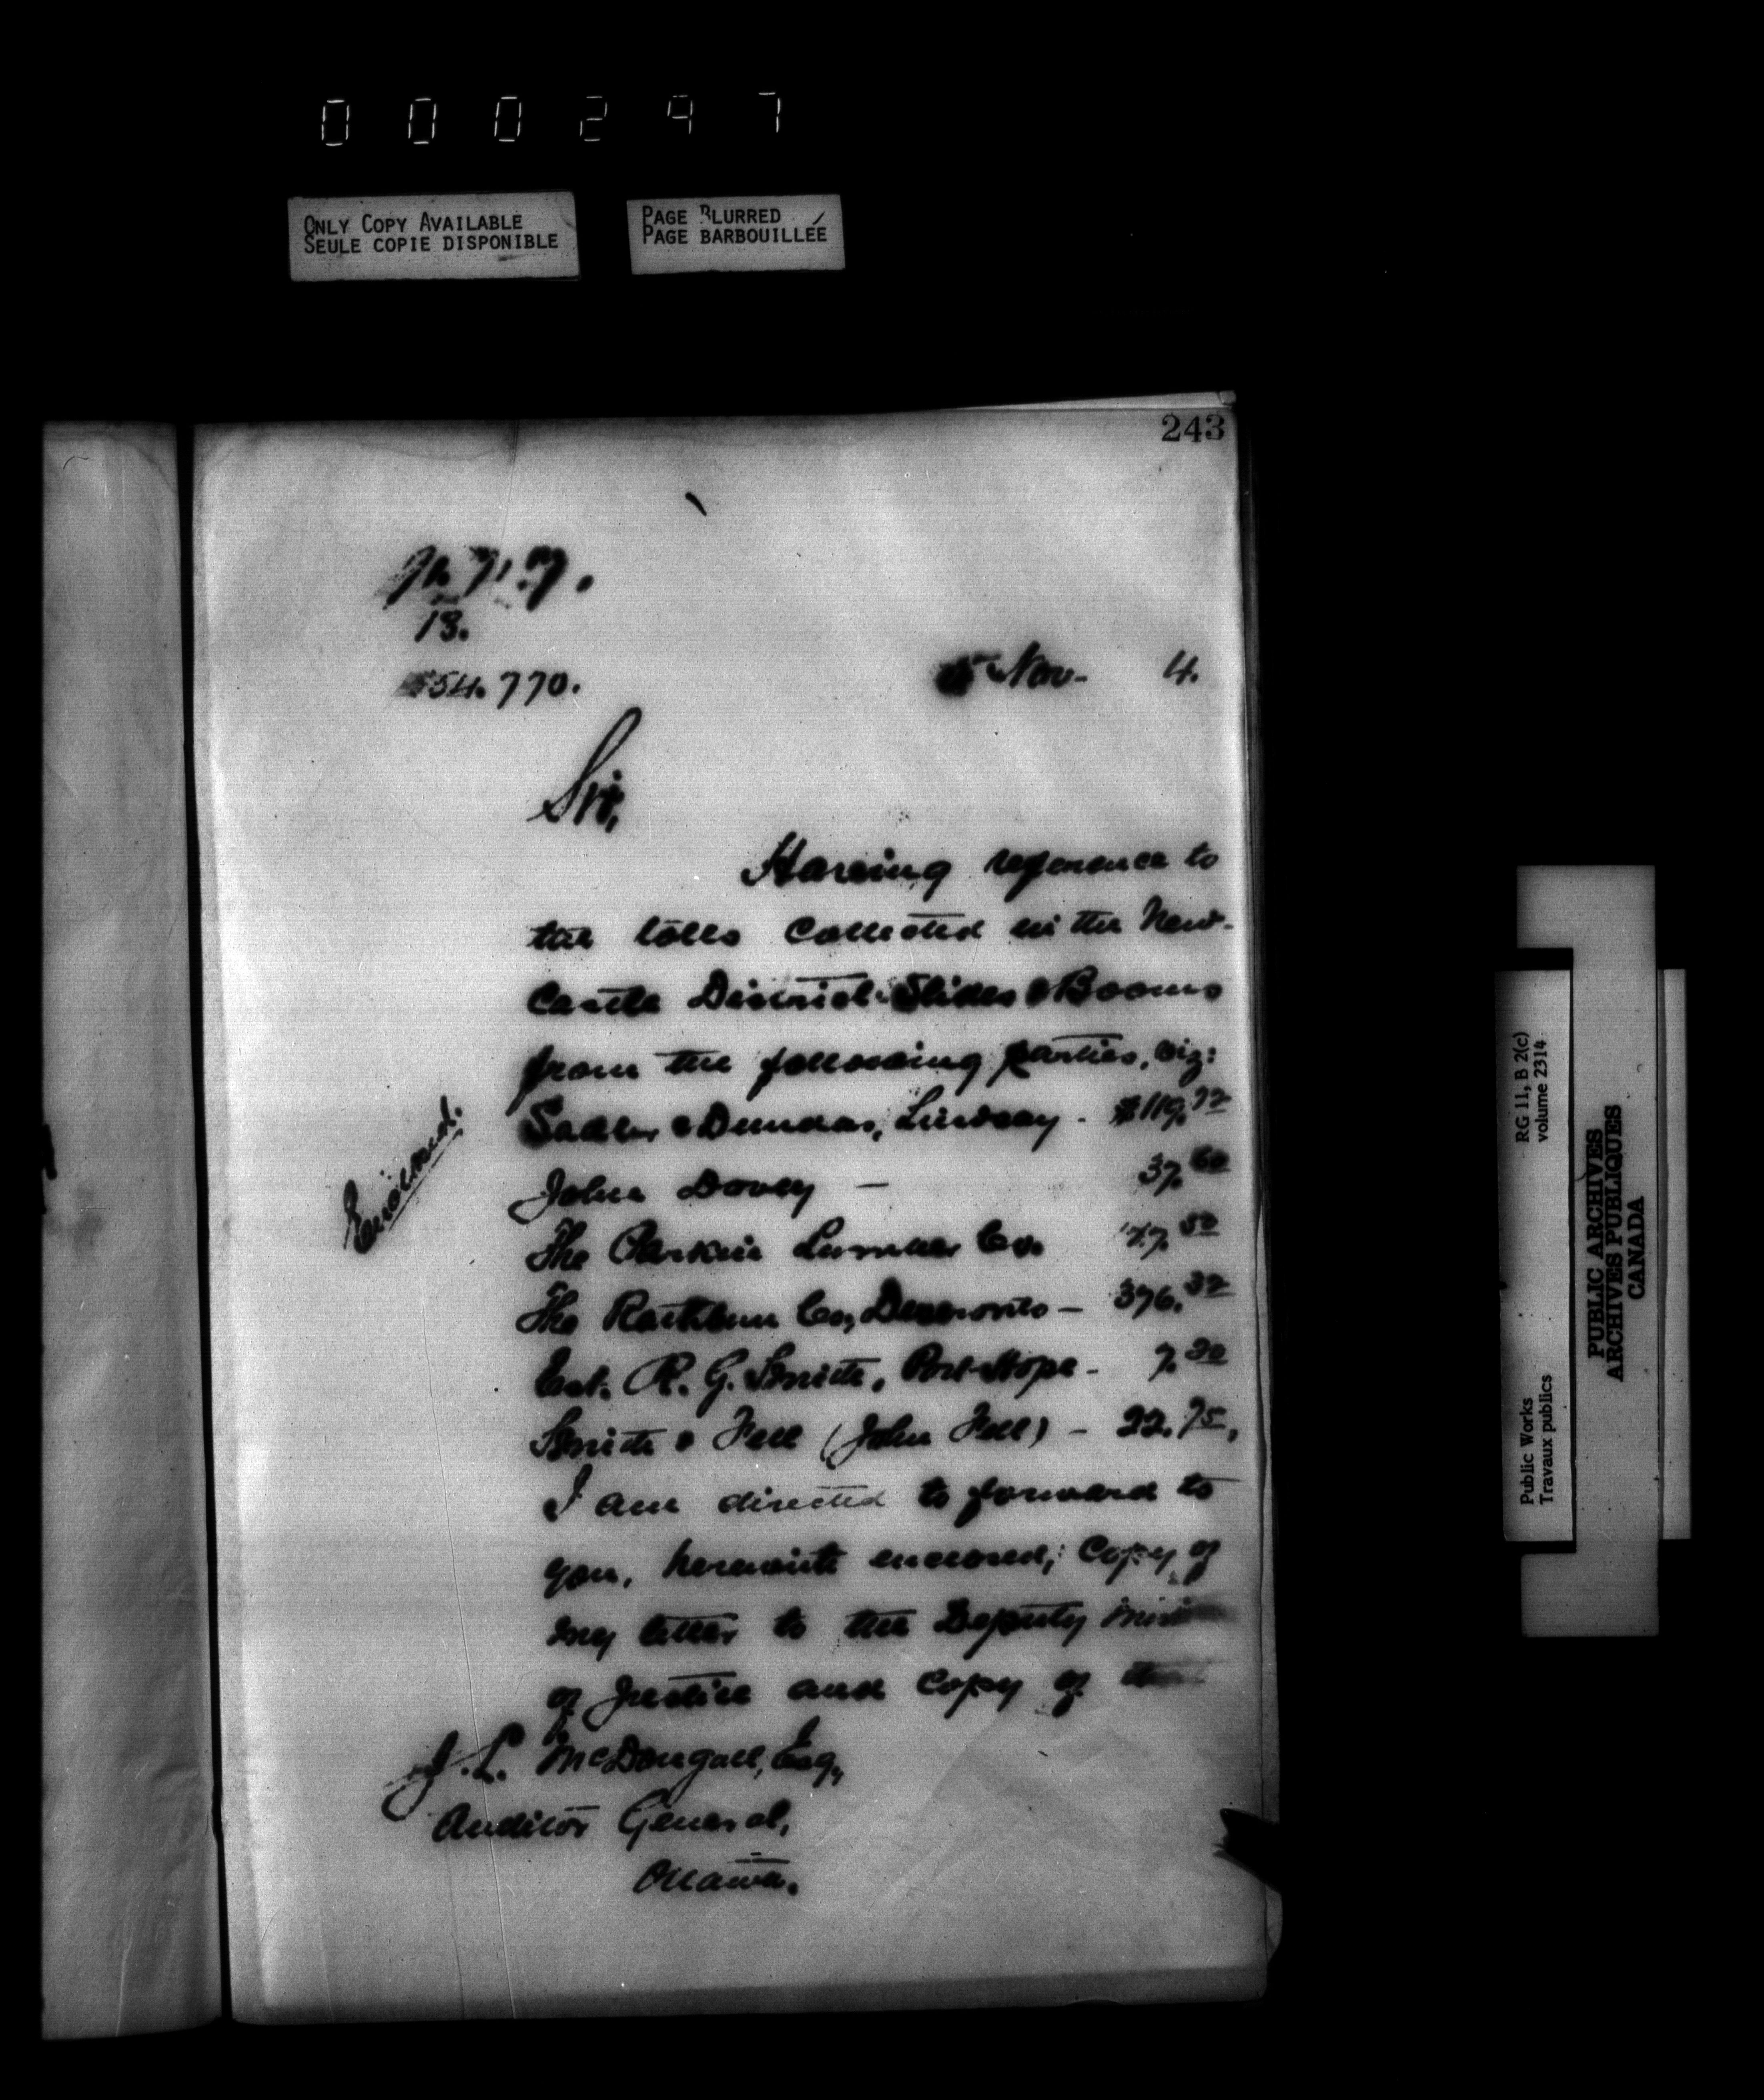 000297
ONLY COPY AVAILABLE
SEULE COPIE DISPONIBLE
PAGE BLURRED
PAGE BARBOUILLÉE
243
13.
54.770.
Nov. 4.
Sir,
Having reference to
the tolls collected in the New-
castle District Slides & Booms
from the following parties, viz:
Sadler & Dundas, Lindsay - $119.72
John Dovey - 37.60
The Parkin Lumber Co. 77.50
The Rathbun Co, Deseronto - 376.32
Est. R. G. Smith, Port Hope - 7.30
Smith & Fell (John Fell) - 22.75,
I am directed to forward to
you, herewith enclosed, copy of
my letter to the Deputy
of Justice and copy of
Enclosed.
J. L. McDougall, Esq,
Auditor General,
Ottawa.
RG 11, B 2(c)
volume 2314
Public Works
Travaux publics
PUBLIC ARCHIVES
ARCHIVES PUBLIQUES
CANADA